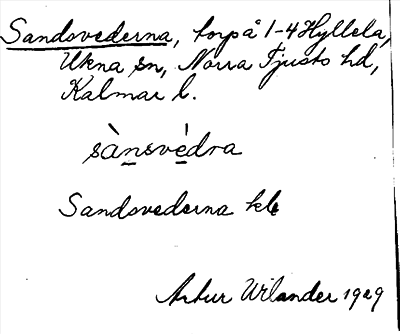 Sandsvederna, torp å 1-4 Hyllela,
Ukna sn, Norra Tjusts hd,
Kalmar l.
sànsvèdra
Sandsvederna
Artur Wilander 1929